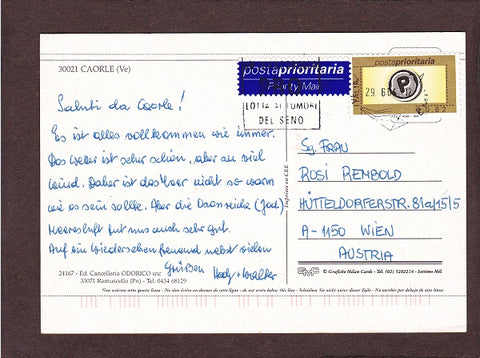 30021 CAORLE (Ve)
Saluti da Caorle!
Es ist alles vollkommen wie immer.
Das Wetter ist sehr schön, aber zu viel
Wind. Daher ist das Meer nicht so warm
wie es sein sollte. Aber die
Meeresluft tut uns auch sehr gut.
Auf ein Wiedersehen freuend nebst vielen
Grüßen
24167 - Ed. Cancelleria ODORICO snc
33071 Ramuscello (Pn) - Tel. 0434 68129
postaprioritaria
Priority Mail
LOTTA AI TUMORI
DEL SENO
postaprioritaria
P
ITALIA
0,62
29 6
Sg. FRAU
ROSI REMBOLD
HÜTTELDORFERSTR. 81a/15/5
A-1150 WIEN
AUSTRIA
© Grafiche Milan Cards - Tel. (02) 5282214 - Settimo Mil.
Non scrivere sotto questa linea - Ne rien écrire au dessous de cette ligne - do not write below this line - Schreiben Sie nicht weiter dieser Linie